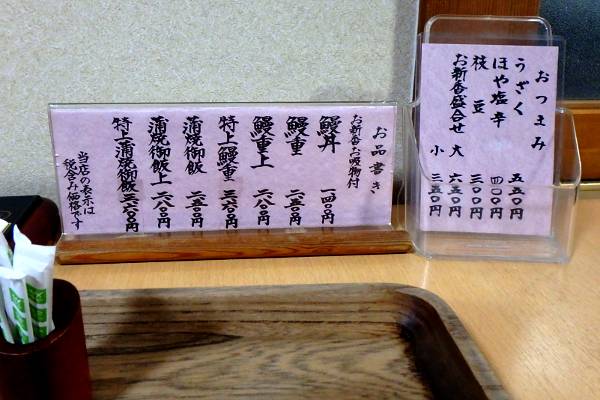 お品書き
お新香お吸物付
鰻丼 一四〇〇円
鰻重 二一五〇円
鰻重上 二六八〇円
特上鰻重 三六六〇円
蒲焼御飯 二一五〇円
蒲焼御飯上 二六八〇円
特上蒲焼御飯 三六六〇円
当店の表示は
税含み価格です
おつまみ
うざく 五五〇円
ほや塩辛 四〇〇円
枝豆 三〇〇円
お新香盛合せ 大 六五〇円
小 三五〇円